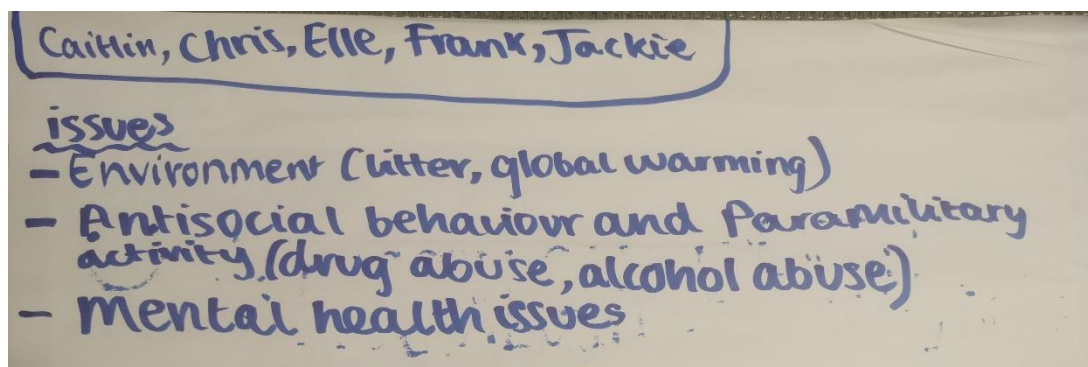 Caitlin, Chris, Elle, Frank, Jackie
issues
- Environment (litter, global warming)
- Antisocial behaviour and Paramilitary
activity (drug abuse, alcohol abuse)
- Mental health issues